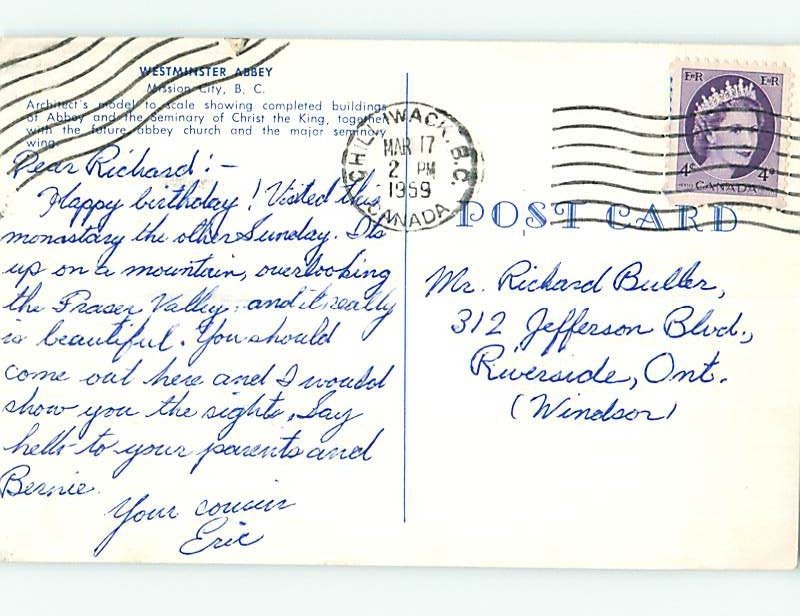 WESTMINSTER ABBEY
Mission City, B. C.
Architect's model to scale showing completed buildings
of Abbey and the Seminary of Christ the King, together
with the future abbey church and the major seminary
wing.
Dear Richard:-
Happy birthday! Visited this
monastary the other Sunday. Its
up on a mountain, overlooking
the Fraser Valley, and it really
is beautiful. You should
come out here and I would
show you the sights. Say
hello to your parents and
Bernie.
Your cousin
Eric
CHILLIWACK, B.C.
MAR 17
2 PM
1959
CANADA
E II R E II R
4c 4c
CANADA
POST CARD
Mr. Richard Buller,
312 Jefferson Blvd.,
Riverside, Ont.
(Windsor)